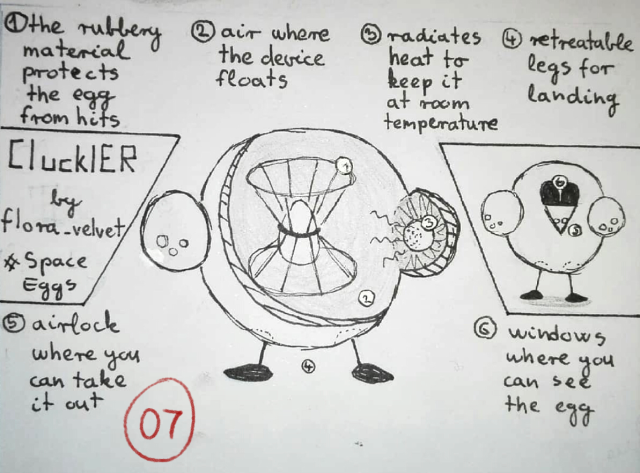 ① the rubbery
material
protects
the egg
from hits
② air where
the device
floats
③ radiates
heat to
keep it
at room
temperature
④ retreatable
legs for
landing
CluckIER
by
flora_velvet
#Space
Eggs
1
2
3
4
6
5
⑤ airlock
where you
can take
it out
07
⑥ windows
where you
can see
the egg